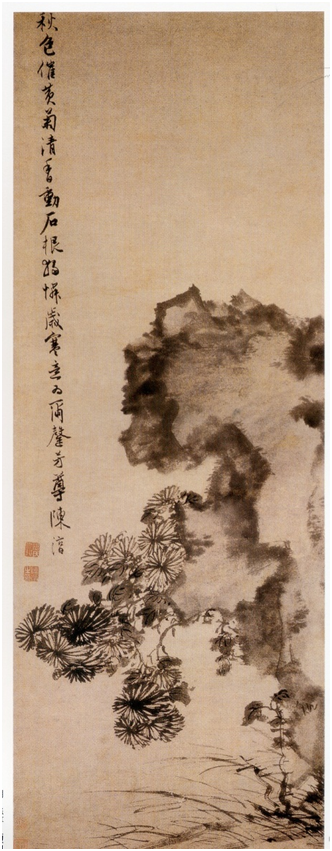 秋色催黄菊清香動石根獨憐歲寒意为爾罄芳尊陳淳